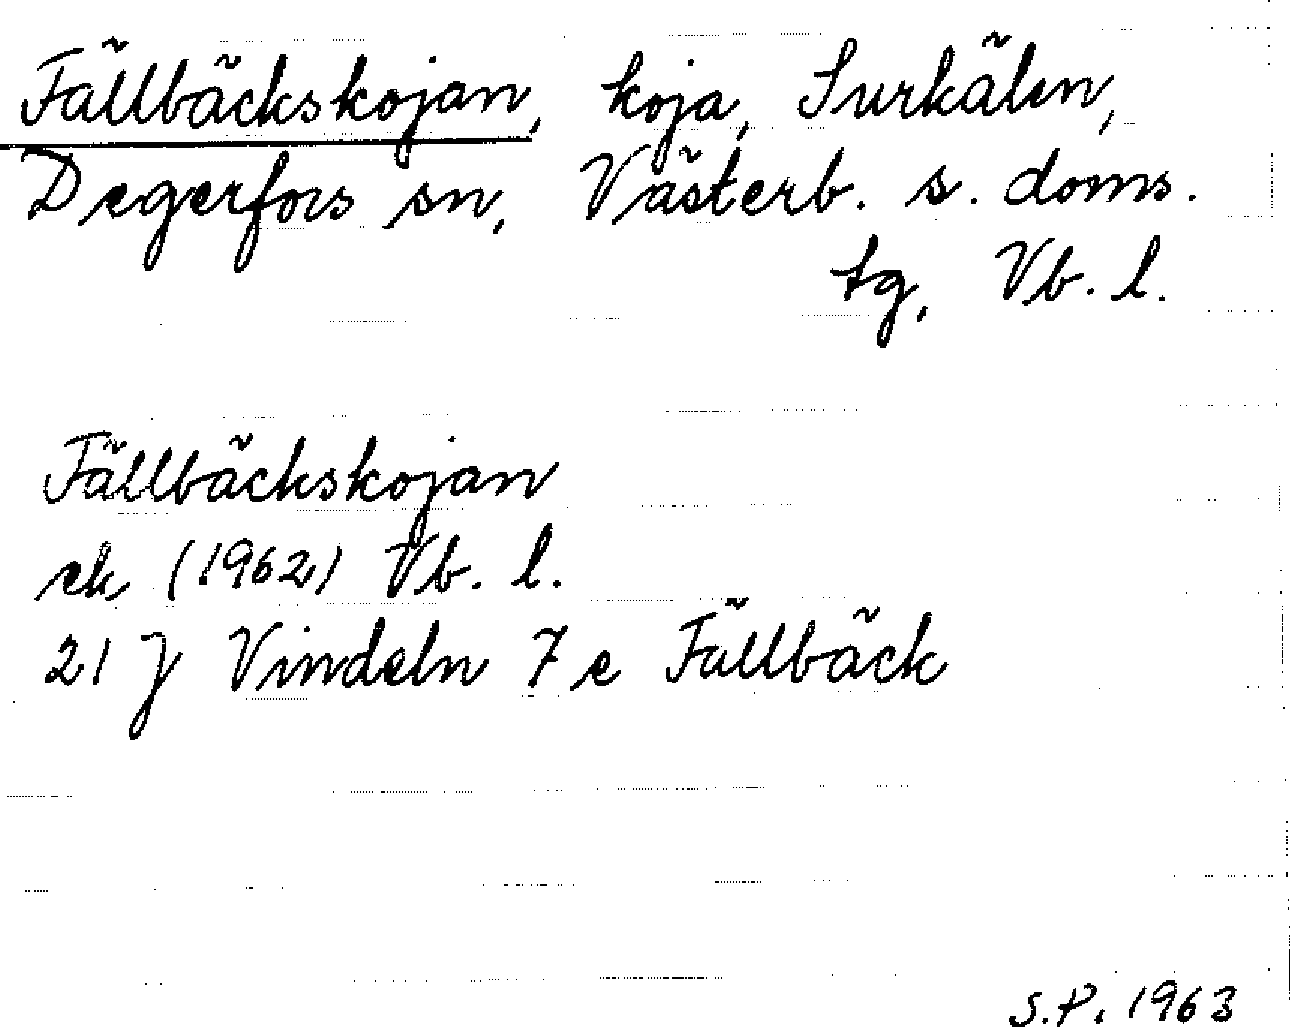 Fällbäckskojan, koja, Surkälen,
Degerfors sn, Västerb. s. doms.
tg, Vb. l.
Fällbäckskojan
ek (1962) Vb. l.
21 J Vindeln 7 e Fällbäck
S.P. 1963